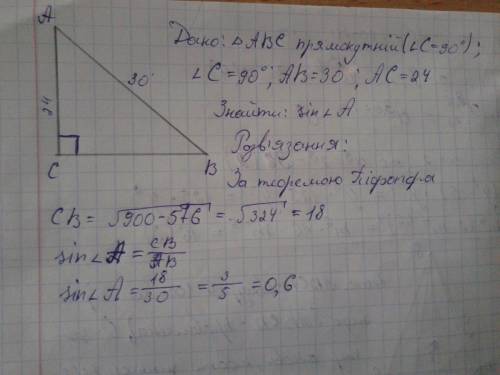 A
Дано: △ABC прямокутній (∠C=90°);
30
∠C=90°; AB=30; AC=24
24
Знайти: sin∠A
C
B
Розв'язання:
За теоремою Піфагора
CB = √900-576 = √324 = 18
sin∠A = CB/AB
sin∠A = 18/30 = 3/5 = 0,6